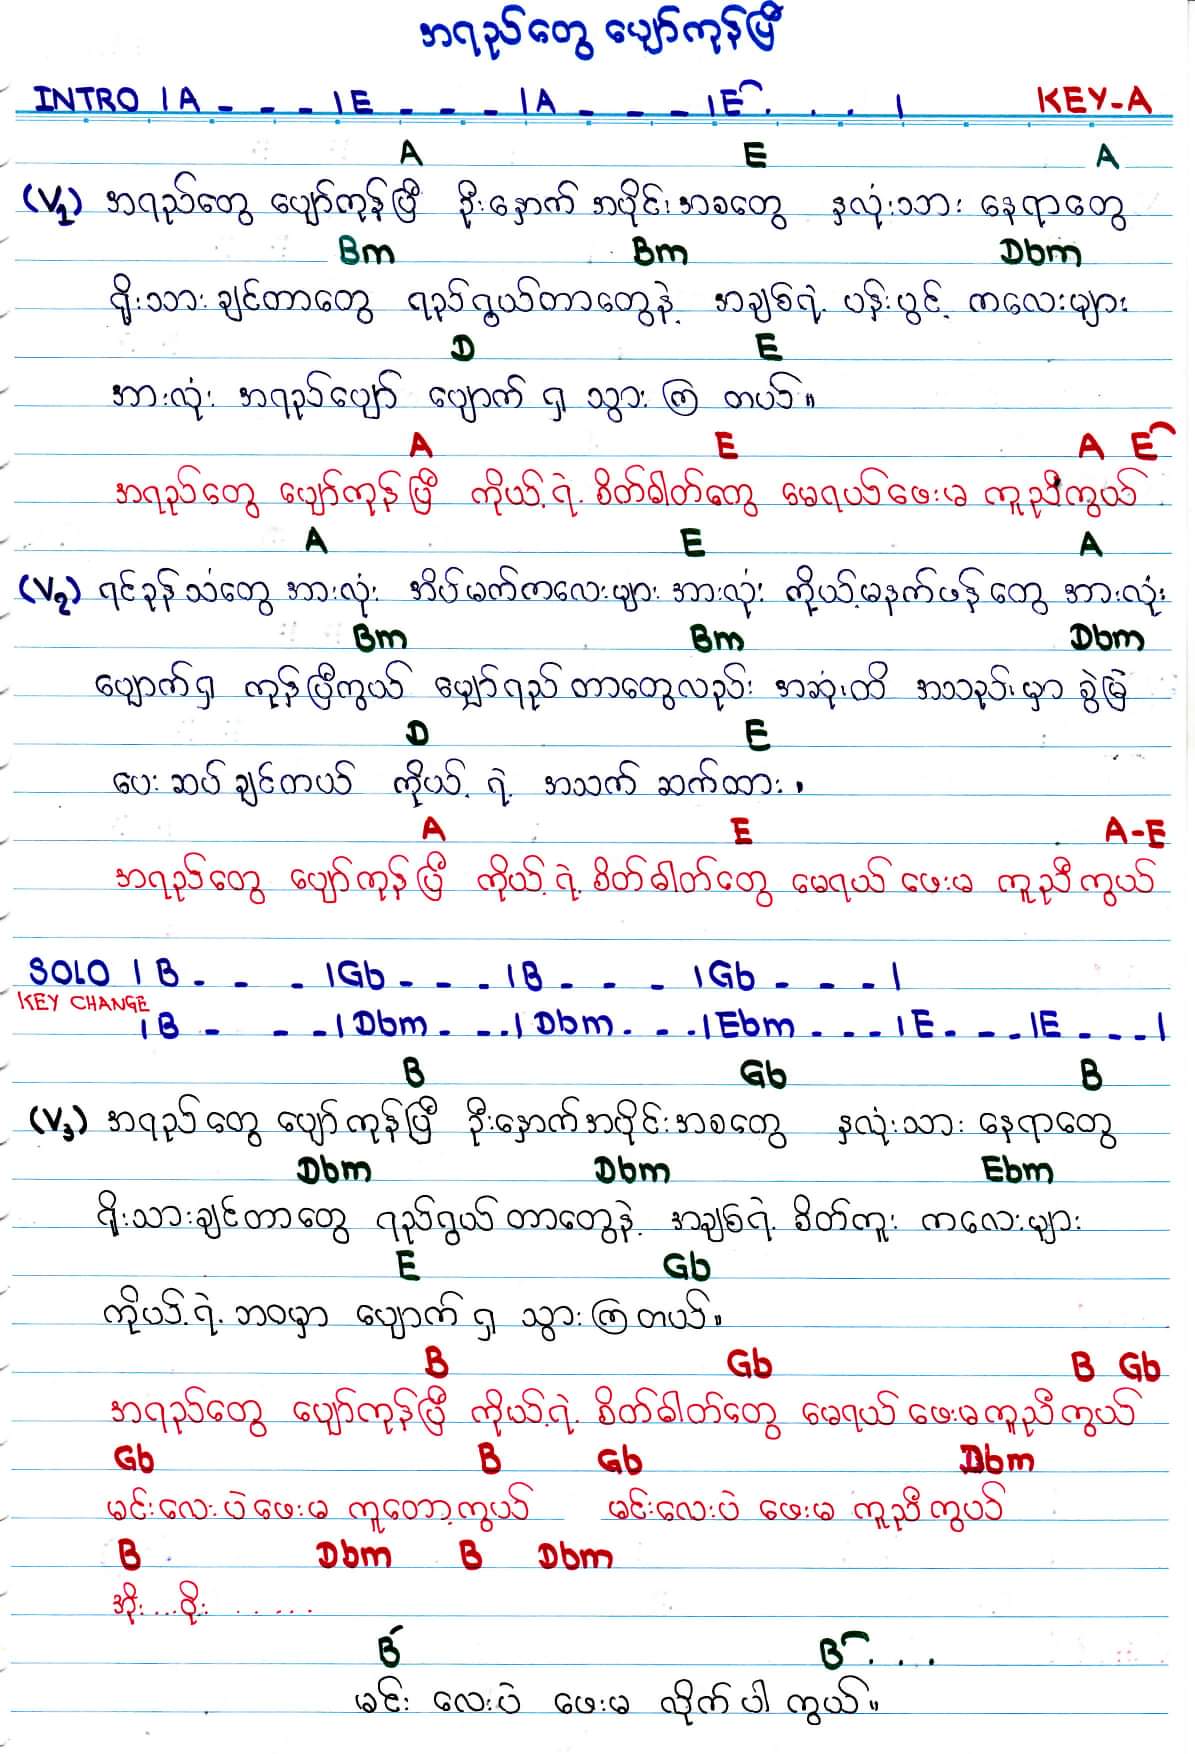 အရည်တွေ ပျော်ကုန်ပြီ
INTRO | A - - - | E - - - | A - - - | E . . . |
KEY-A
A E A
(V1) အရည်တွေ ပျော်ကုန်ပြီ ဦးနှောက် အပိုင်းအစတွေ နှလုံးသား နေရာတွေ
Bm Bm Dbm
ရိုးသားချင်တာတွေ ရည်ရွယ်တာတွေနဲ့ အချစ်ရဲ့ ပန်းပွင့် ကလေးများ
D E
အားလုံး အရည်ပျော် ပျောက် ရှ သွား ကြ တယ်။
A E A E
အရည်တွေ ပျော်ကုန်ပြီ ကိုယ့်ရဲ့ စိတ်ဓါတ်တွေ မေရယ်ဖေးမ ကူညီကွယ်
A E A
(V2) ရင်ခုန်သံတွေ အားလုံး အိပ်မက်ကလေးများ အားလုံး ကိုယ့်မနက်ဖန်တွေ အားလုံး
Bm Bm Dbm
ပျောက်ရှ ကုန်ပြီကွယ် မျှော်ရည် တာတွေလည်း အဆုံးထိ အသည်းမှာ စွဲမြဲ
D E
ပေးဆပ်ချင်တယ် ကိုယ့် ရဲ့ အသက် ဆက်ထား
A E A-E
အရည်တွေ ပျော်ကုန်ပြီ ကိုယ့်ရဲ့ စိတ်ဓါတ်တွေ မေရယ် ဖေးမ ကူညီကွယ်
SOLO | B - - - | Gb - - - | B - - - | Gb - - - |
KEY CHANGE
| B - - - | Dbm - - - | Dbm - - - | Ebm - - - | E - - - | E - - - |
B Gb B
(V3) အရည်တွေ ပျော်ကုန်ပြီ ဦးနှောက်အပိုင်းအစတွေ နှလုံးသား နေရာတွေ
Dbm Dbm Ebm
ရိုးသားချင်တာတွေ ရည်ရွယ်တာတွေနဲ့ အချစ်ရဲ့ စိတ်ကူး ကလေးများ
E Gb
ကိုယ့်ရဲ့ ဘဝမှာ ပျောက် ရှ သွား ကြတယ်။
B Gb B Gb
အရည်တွေ ပျော်ကုန်ပြီ ကိုယ့်ရဲ့ စိတ်ဓါတ်တွေ မေရယ် ဖေးမကူညီကွယ်
Gb B Gb Dbm
မင်းလေးပဲဖေးမ ကူတော့ကွယ် မင်းလေးပဲ ဖေးမ ကူညီကွယ်
B Dbm B Dbm
အိုး...
B B . . .
မင်း လေးပဲ ဖေးမ လိုက်ပါ ကွယ်။